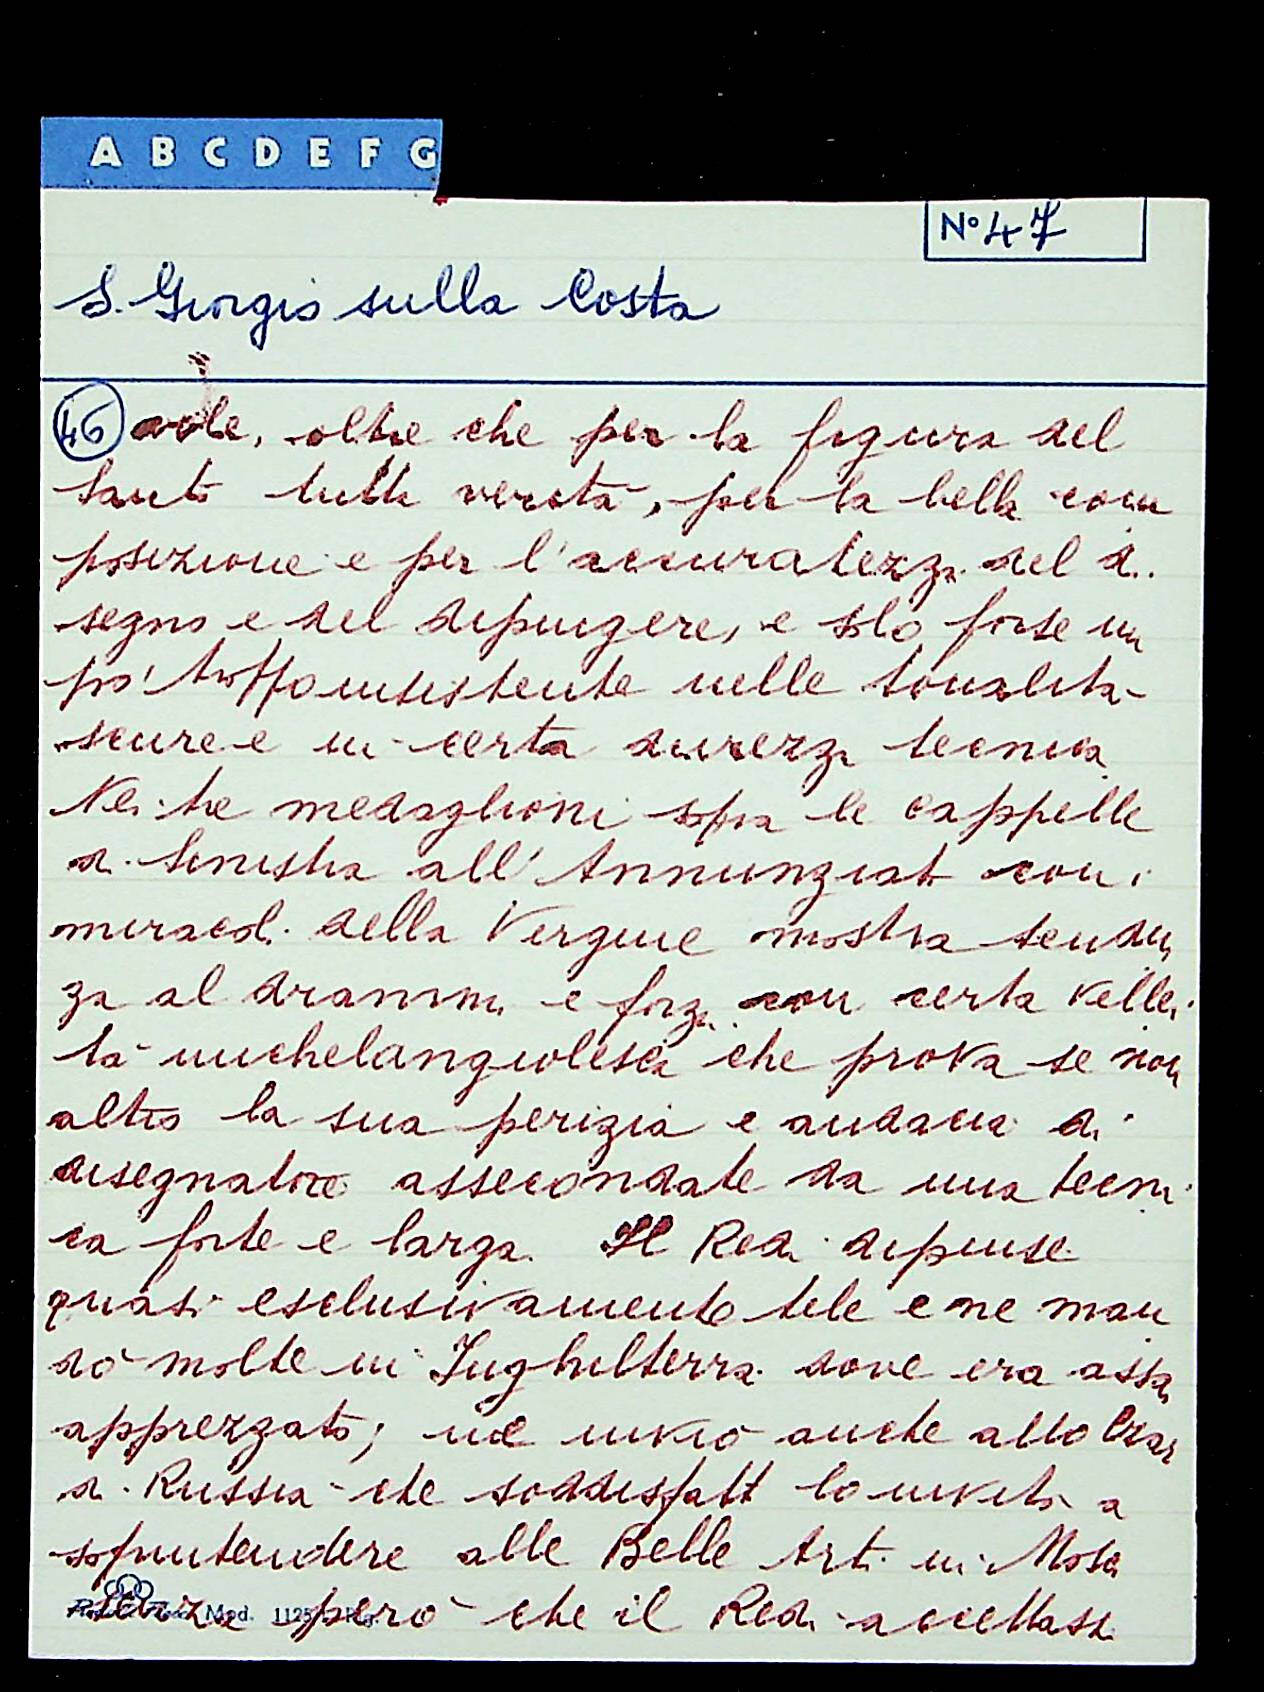 A B C D E F G
No 47
S. Giorgio sulla Costa
46 vole, oltre che per la figura del
Santo tutta verità, per la bella com
posizione e per l'accuratezza del di
segno e del dipingere, e solo forse un
po' troppo insistente nelle tonalità
scure e in certa durezza tecnica
Nei tre medaglioni sopra le cappelle
di sinistra all'Annunziata con i
miracoli della Vergine mostra tenden
za al dramma e forza con certa vellei
tà michelangiolesca che prova se non
altro la sua perizia e audacia di
disegnatore assecondate da una tecni
ca forte e larga. Il Redi dipinse
quasi esclusivamente tele e ne man
dò molte in Inghilterra dove era assai
apprezzato; ne inviò anche allo Czar
di Russia che soddisfatto lo invitò a
sopraintendere alle Belle Arti in Mosca
senza però che il Redi accettasse
Mod. 1125